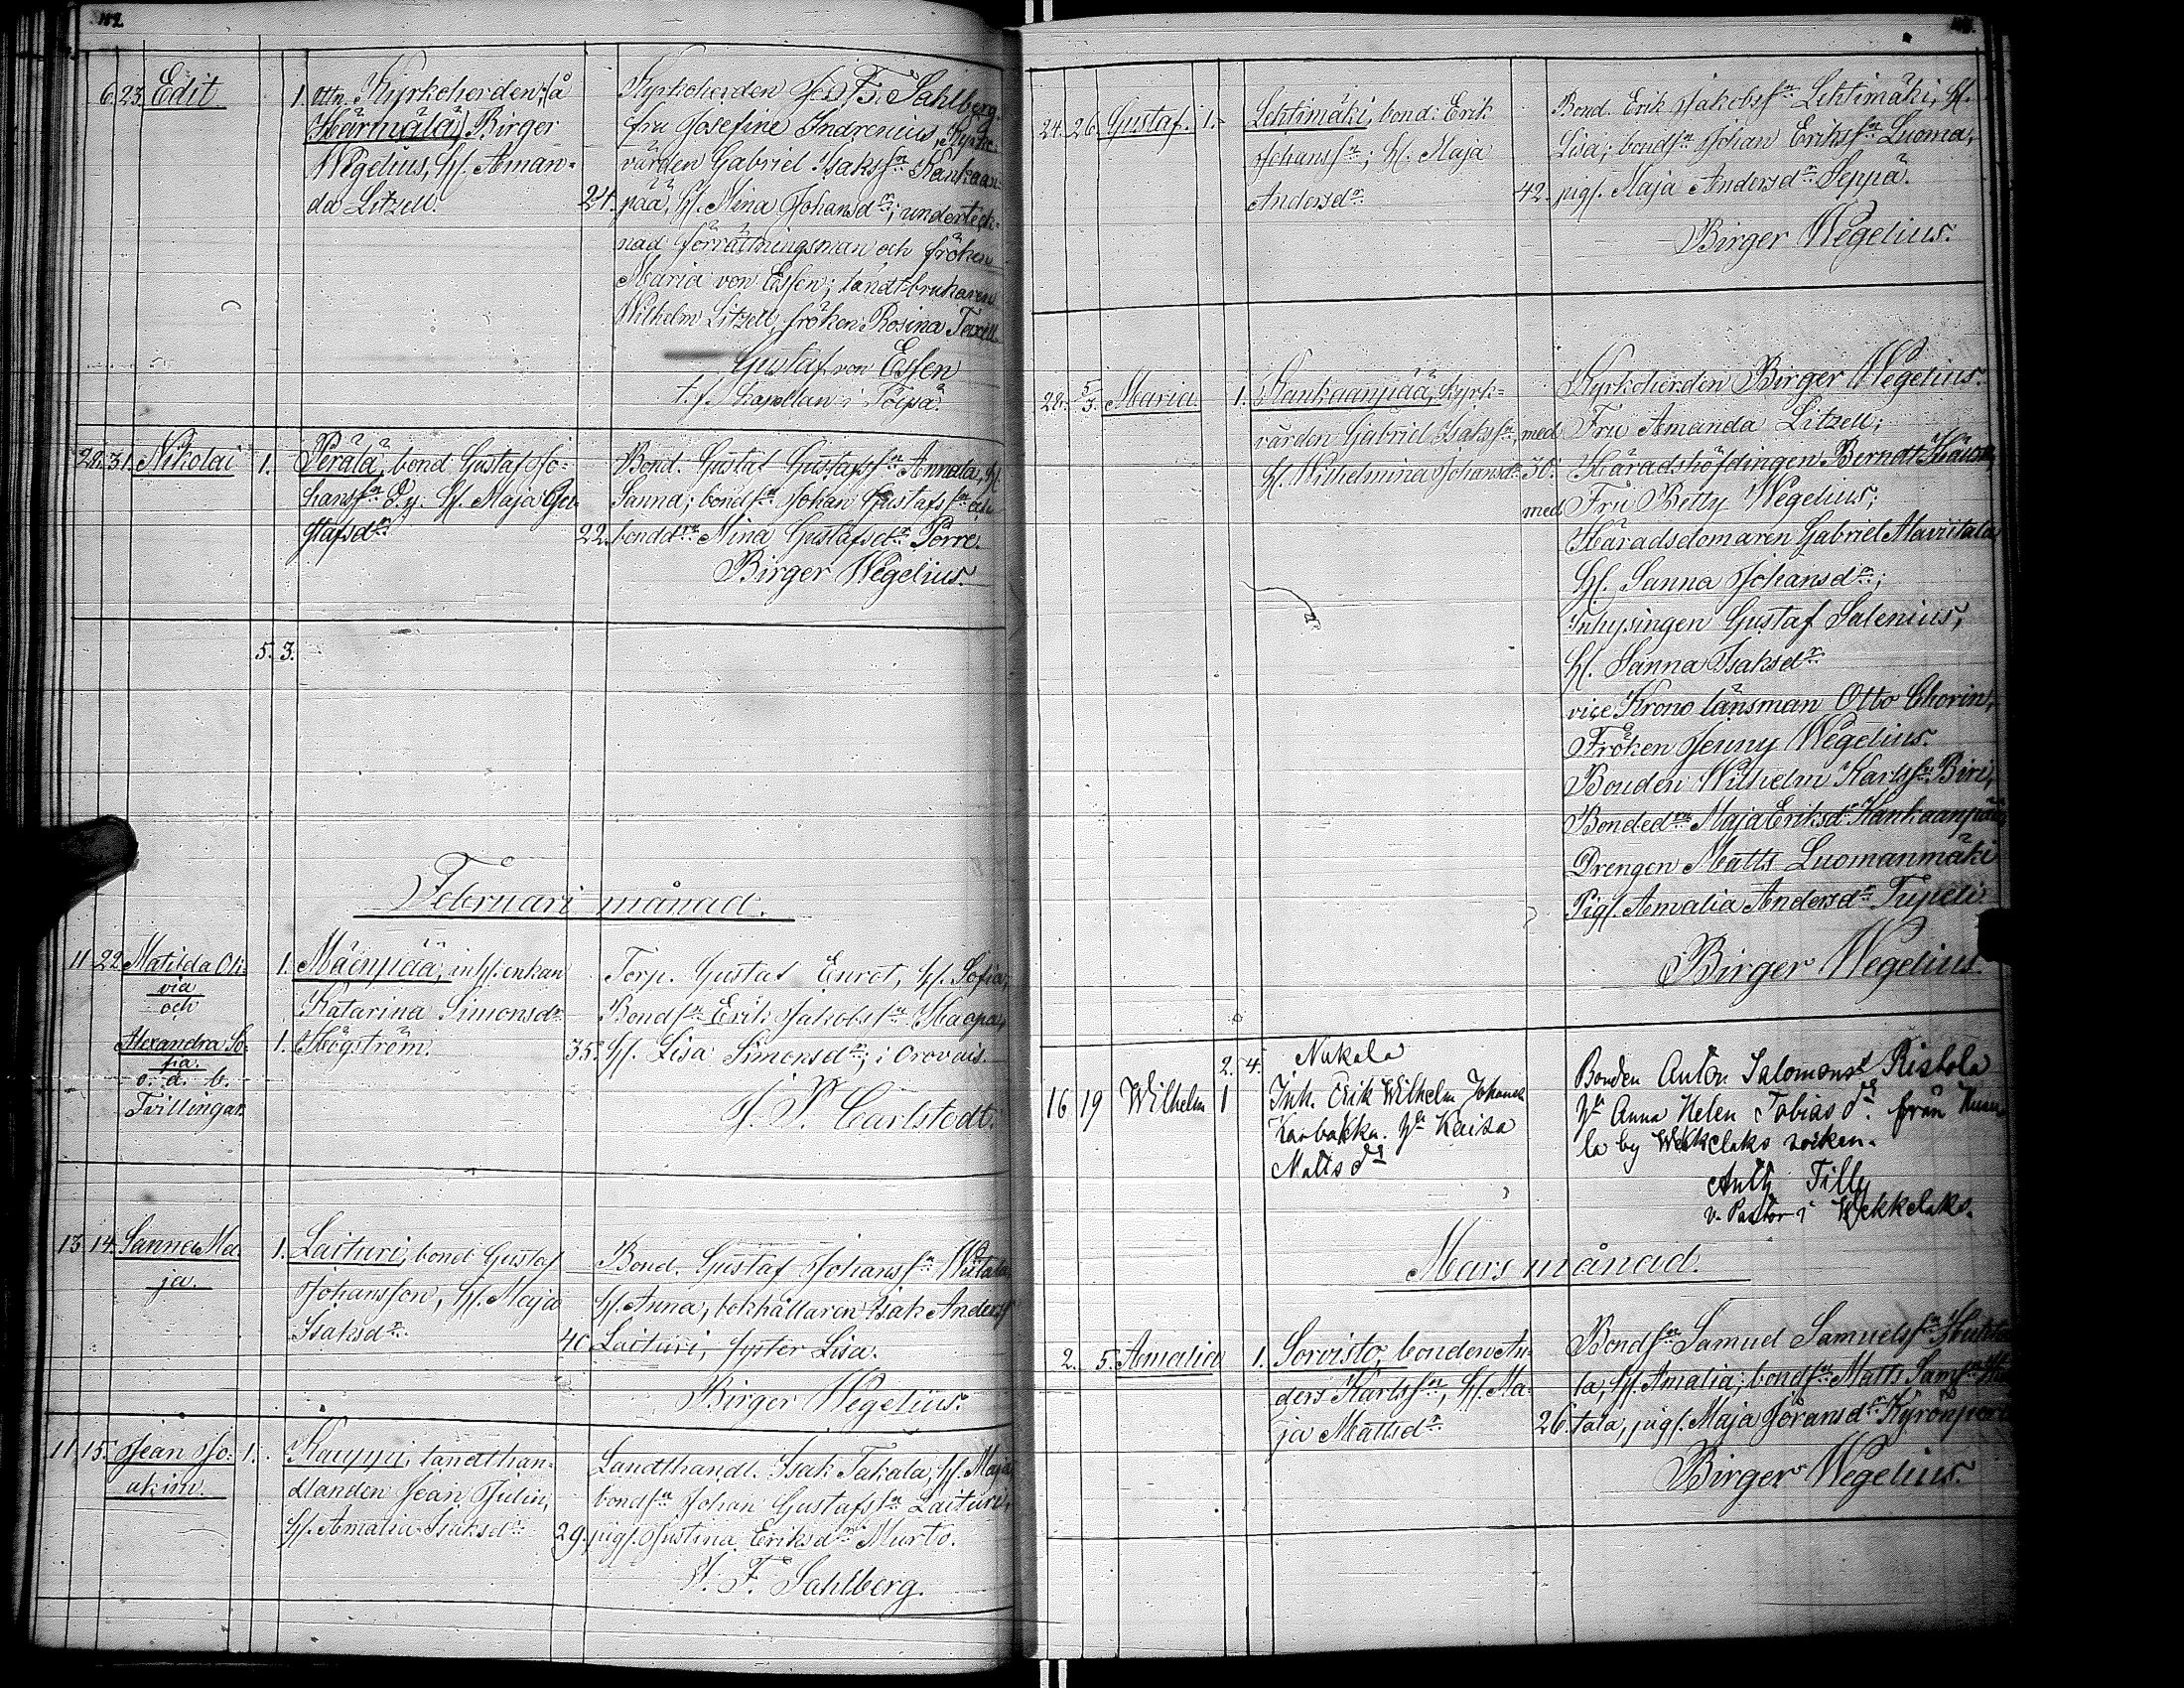 6. 23. Edit 1. Ottn. Kyrkoherden, (å
Härmälä) Birger
Wegelius, H. Aman-
da Litzell. 24.
Kyrkoherden Jos. F. Sahlberg,
fru Josefine Indrenius, Kyrko-
värden Gabriel Isaksson Kankaan-
pää, H. Mina Johansdr; underteck-
nad förrättningsman och fröken
Maria von Essen; landtbrukaren
Wilhelm Litzell, fröken Rosina Toxell.
Gustaf von Essen
t. f. kapellan i Töysä.
28. 31. Nikolai 1. Perälä, bond. Gustaf Jo-
hansson d.y. H. Maja Gu-
stafsdr. 22.
Bond. Gustaf Gustafsson Annala, H.
Sanna; bondsn Johan Gustafsson och
bonddn Mina Gustafsdr Porre.
Birger Wegelius.
5. 3.
Februari månad.
11 22 Matilda Oli-
via
och
Alexandra So-
fia.
o. ä. b.
Tvillingar.
1. Mäenpää, inh. enkan
Katarina Simonsdr
1. Högström. 35.
Torp. Gustaf Enrot, H. Sofia,
Bondsn Erik Jakobsson Haapa,
H. Lisa Simonsdr; i Orovais.
J. W. Carlstedt.
13. 14. Sanna Ma-
ja.
1. Laituri, bond Gustaf
Johansson, H. Maja
Isaksdr. 40.
Bond. Gustaf Johansson Wiitala,
H. Anna, bokhållaren Isak Anderss
Laituri, syster Lisa.
Birger Wegelius.
11. 15. Jean Jo-
akim. 1.
Kauppi, landthan-
dlanden Jean Julin,
H. Amalia Isaksdr 29.
Landthandl. Isak Takala, H. Maja
bondsn Johan Gustafsson Laituri,
pig. Justina Eriksdr Murto.
J. F. Sahlberg.
24. 26. Gustaf. 1. Lehtimäki, bond: Erik
Johansson; H. Maja
Andersdr. 42.
Bond. Erik Jakobsson Lehtimäki, H.
Lisa; bondsn Johan Eriksson Luoma,
pig. Maja Andersdr Seppä.
Birger Wegelius.
28. 5/3. Maria 1. Kankaanpää, kyrk-
värden Gabriel Isaksson,
H. Wilhelmina Johansdr 36.
Kyrkoherden Birger Wegelius.
med Fru Amanda Litzell;
Häradshöfdingen Berndt
med Fru Betty Wegelius;
Häradsdomaren Gabriel Alaviitala,
H. Sanna Johansdr;
Inhysingen Gustaf Salenius,
H. Sanna Isaksdr
vice Krono länsman Otto Chorin,
Fröken Jenny Wegelius.
Bonden Wilhelm Karlsson Biri,
Bondedn Maja Eriksdr Kankaanpää,
Drengen Matts Luomanmäki
Pig. Amalia Andersdr Tupeli.
Birger Wegelius.
2. 4.
16 19 Wilhelm 1 Nukala
Inh. Erik Wilhelm Johanss
Karbakka. H Kaisa
Matts dr
Bonden Anton Salomonss Ristola
H Anna Helen Tobias dr från
la by Wekkelaks socken.
Anth Tilly
v. Pastor i Wekkelaks.
Mars månad.
2. 5. Amalia 1. Sorvisto, bonden An-
ders Karlsson, H. Ma-
ja Mattsdr 26.
Bondsn Samuel Samuelsson
la, H. Amalia; bondsn Matts
tala, pig. Maja Göransdr Kyrönpää
Birger Wegelius.